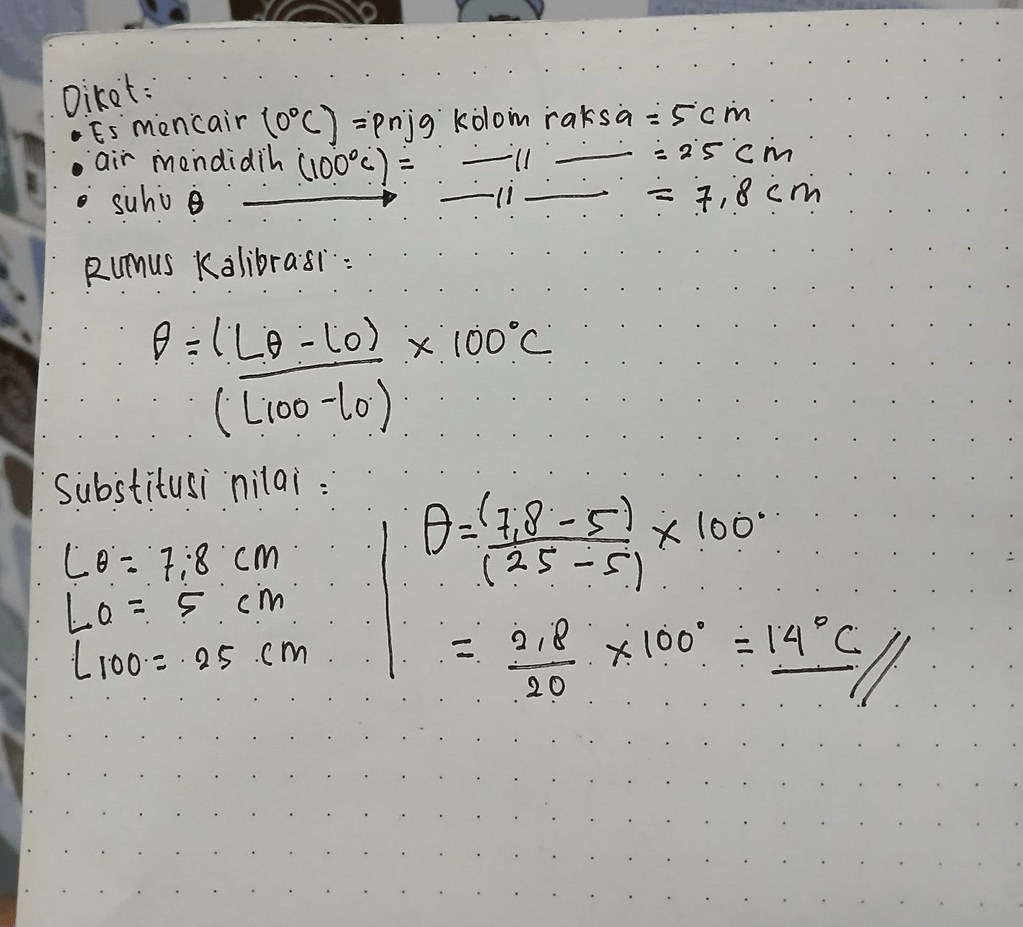 Diket:
• Es mencair (0°C) = pnjg kolom raksa = 5 cm
• air mendidih (100°c) = —〃— = 25 cm
• suhu θ → —〃— = 7,8 cm
Rumus Kalibrasi :
θ = (Lθ - lo) x 100°C
(L100 - lo)
Substitusi nilai :
Lθ = 7,8 cm
Lo = 5 cm
L100 = 25 cm
θ = (7,8 - 5) x 100°
(25 - 5)
= 2,8 x 100° = 14°C //
20